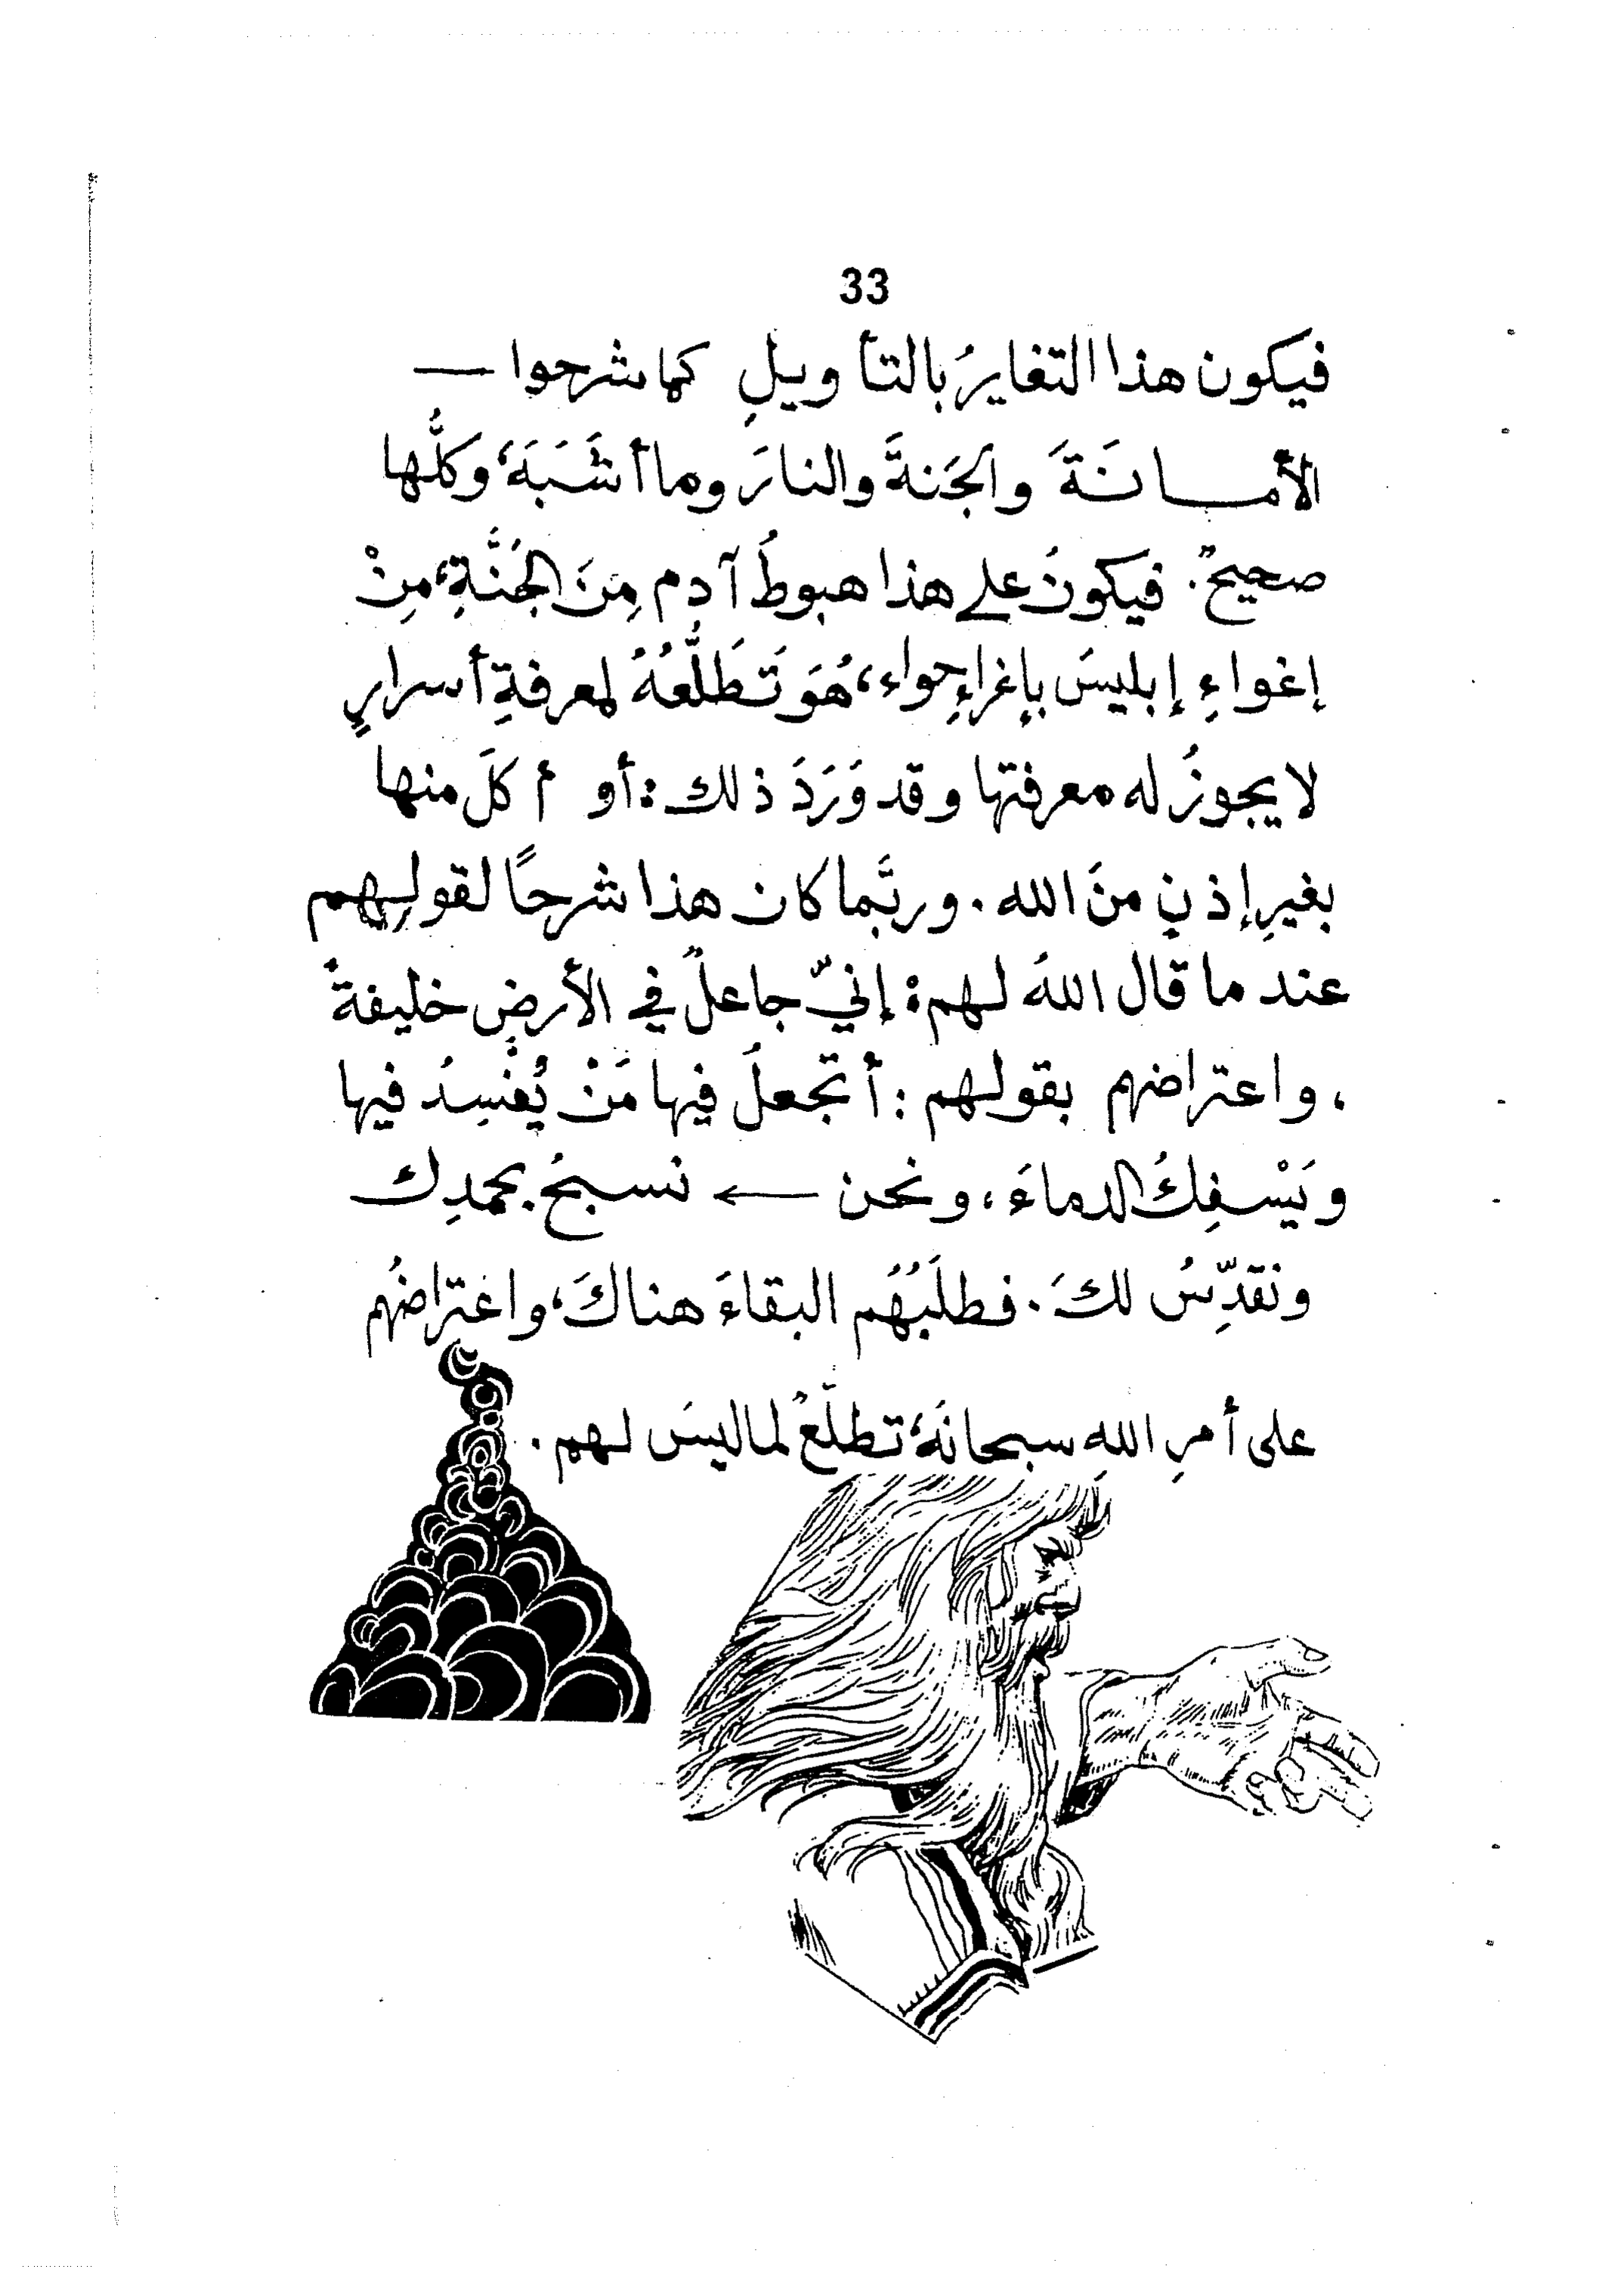 33
فيكون هذا التغايرُ بالتأويلِ كما شرحوا —
الأمانَةَ والجَنةَ والنارَ وما أشَبَهَ، وكلُّها
صحيحٌ. فيكونُ على هذا هبوطُ آدم مِنَ الجَنَّةِ، مِنْ
إغواءِ إبليسَ بإغراءِ حواء، هُوَ تَطَلُّعُهُ لمعرفةِ أسرارٍ
لا يجوزُ له معرفتها وقد وَرَدَ ذلك: أو أكلَ منها
بغيرِ إذنٍ منَ الله. وربَّما كان هذا شرحًا لقولِهم
عند ما قال اللهُ لهم: إنيّ جاعلٌ في الأرضِ خليفةً
، واعتراضهم بقولهم: أتجعلُ فيها مَنْ يُفْسِدُ فيها
ويَسْفِكُ الدماءَ، ونحن ← نسبحُ بحمدِك
ونقدِّسُ لكَ. فطلَبُهُم البقاءَ هناكَ، واعتراضُهم
على أمرِ اللهِ سبحانَهُ، تطلّعٌ لما ليسَ لهم.